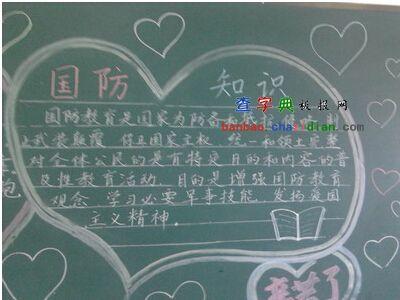 国防 知识
查字典板报网
banbao.chazidian.com
国防教育是国家为防备和抵抗侵
止武装颠覆 保卫国家主权、统一和领土完整
对全体公民的是有特定目的和内容的普
及性教育活动 目的是增强国防教育
观念 学习必要军事技能 发扬爱国
主义精神。